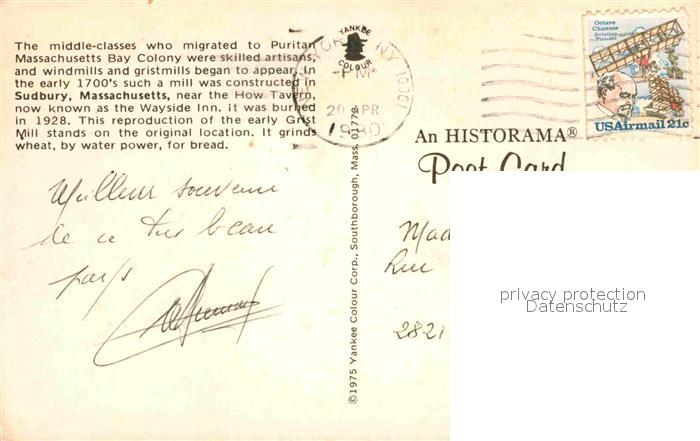 The middle-classes who migrated to Puritan
Massachusetts Bay Colony were skilled artisans,
and windmills and gristmills began to appear. In
the early 1700's such a mill was constructed in
Sudbury, Massachusetts, near the How Tavern,
now known as the Wayside Inn. It was burned
in 1928. This reproduction of the early Grist
Mill stands on the original location. It grinds
wheat, by water power, for bread.
Meilleur souvenir
de ce très beau
pays
©1975 Yankee Colour Corp., Southborough, Mass. 01772
YANKEE
COLOUR
NY 100
PM
20 APR
1980
An HISTORAMA®
Post Card
Octave
Chanute
Aviation
Pioneer
USAirmail 21c
Mad
Rue
2821
privacy protection
Datenschutz